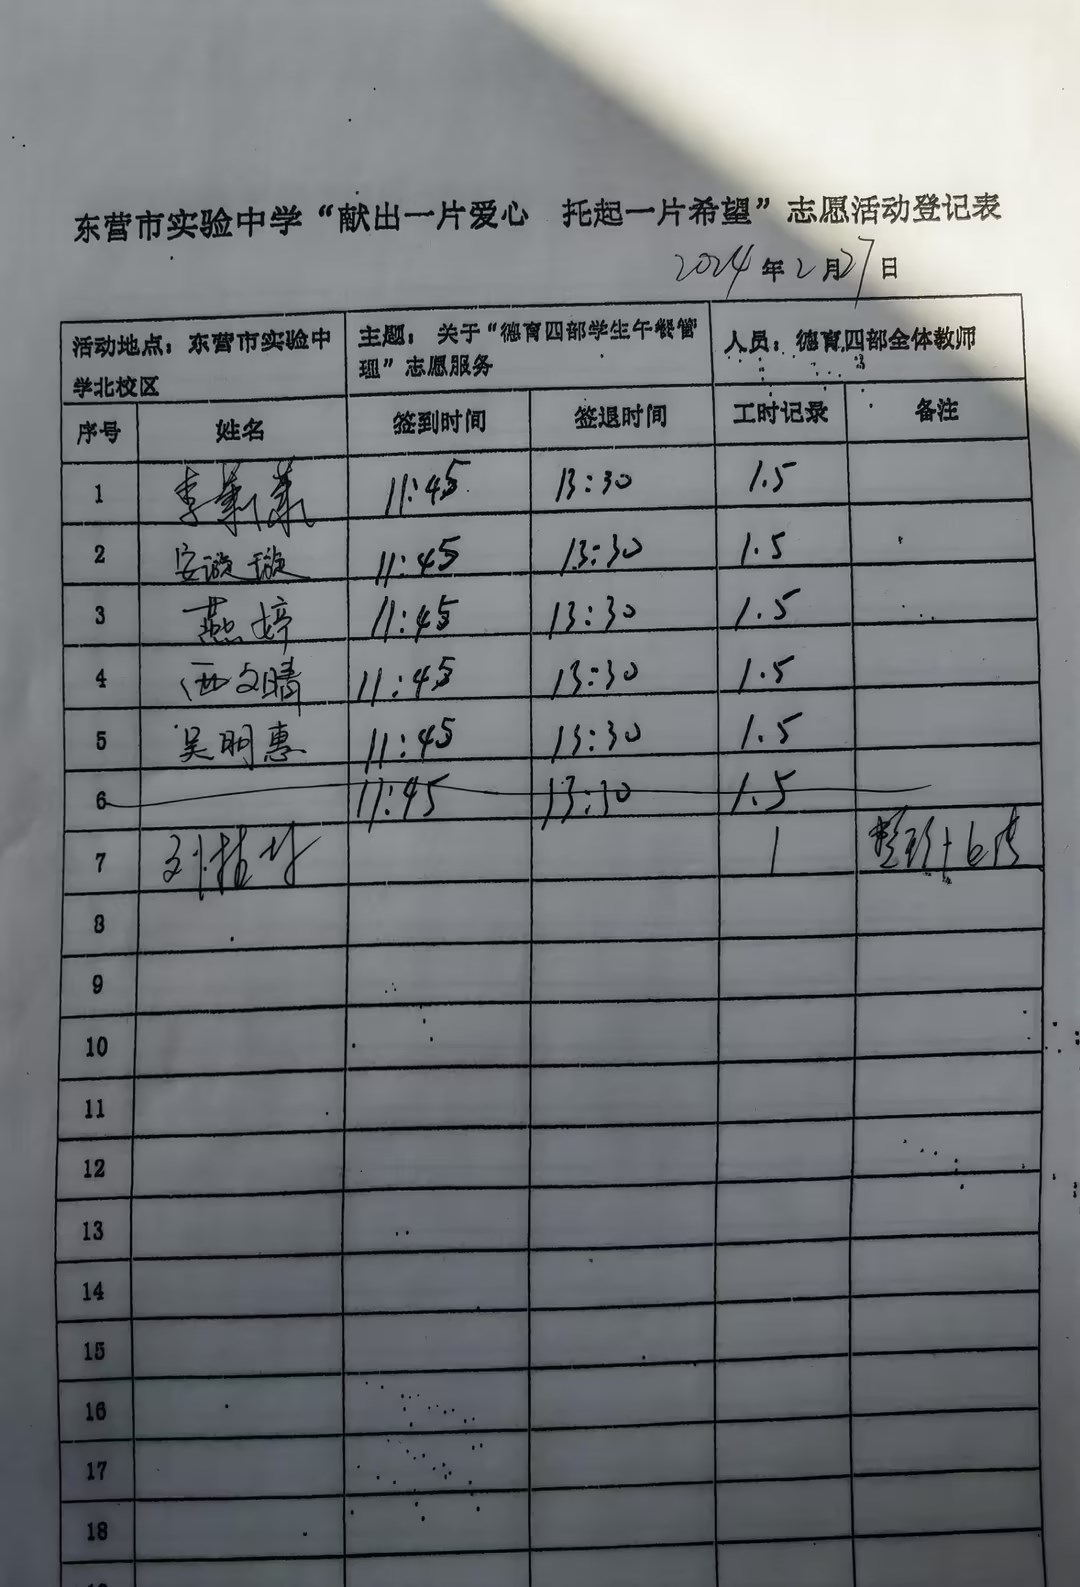 东营市实验中学“献出一片爱心 托起一片希望”志愿活动登记表
2024年2月27日
活动地点：东营市实验中学北校区 主题：关于“德育四部学生午餐管理”志愿服务 人员：德育四部全体教师
序号 姓名 签到时间 签退时间 工时记录 备注
1 李 11:45 13:30 1.5
2 安璇璇 11:45 13:30 1.5
3 燕婷 11:45 13:30 1.5
4 西文晴 11:45 13:30 1.5
5 吴明惠 11:45 13:30 1.5
6 11:45 13:30 1.5
7 刘桂 1
8
9
10
11
12
13
14
15
16
17
18